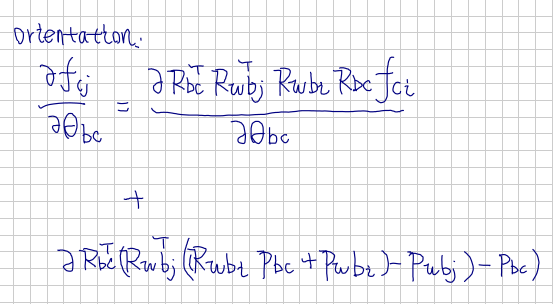 orientation:
∂f_cj / ∂θ_bc = ∂R_bc^T R_wbj^T R_wbi R_bc f_ci / ∂θ_bc
+
∂R_bc^T(R_wbj^T(R_wbi p_bc + p_wbi) - p_wbj) - p_bc)